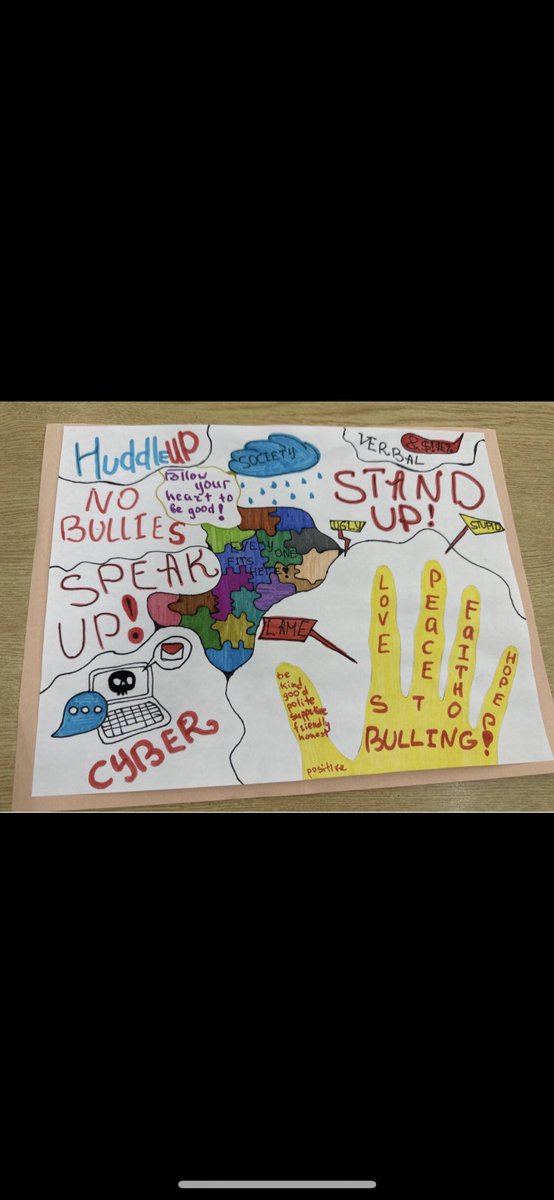 HuddleUP
SOCIETY
Follow
your
heart to
be good!
VERBAL
&$!#%
NO
BULLIES
STAND
UP!
UGLY
STUPID
SPEAK
UP!
EVERY
ONE
FITS
HERE
LAME
CYBER
be
kind
good
polite
supportive
friendly
honest
positive
LOVE
PEACE
FAITH
HOPE
STOP
BULLING!